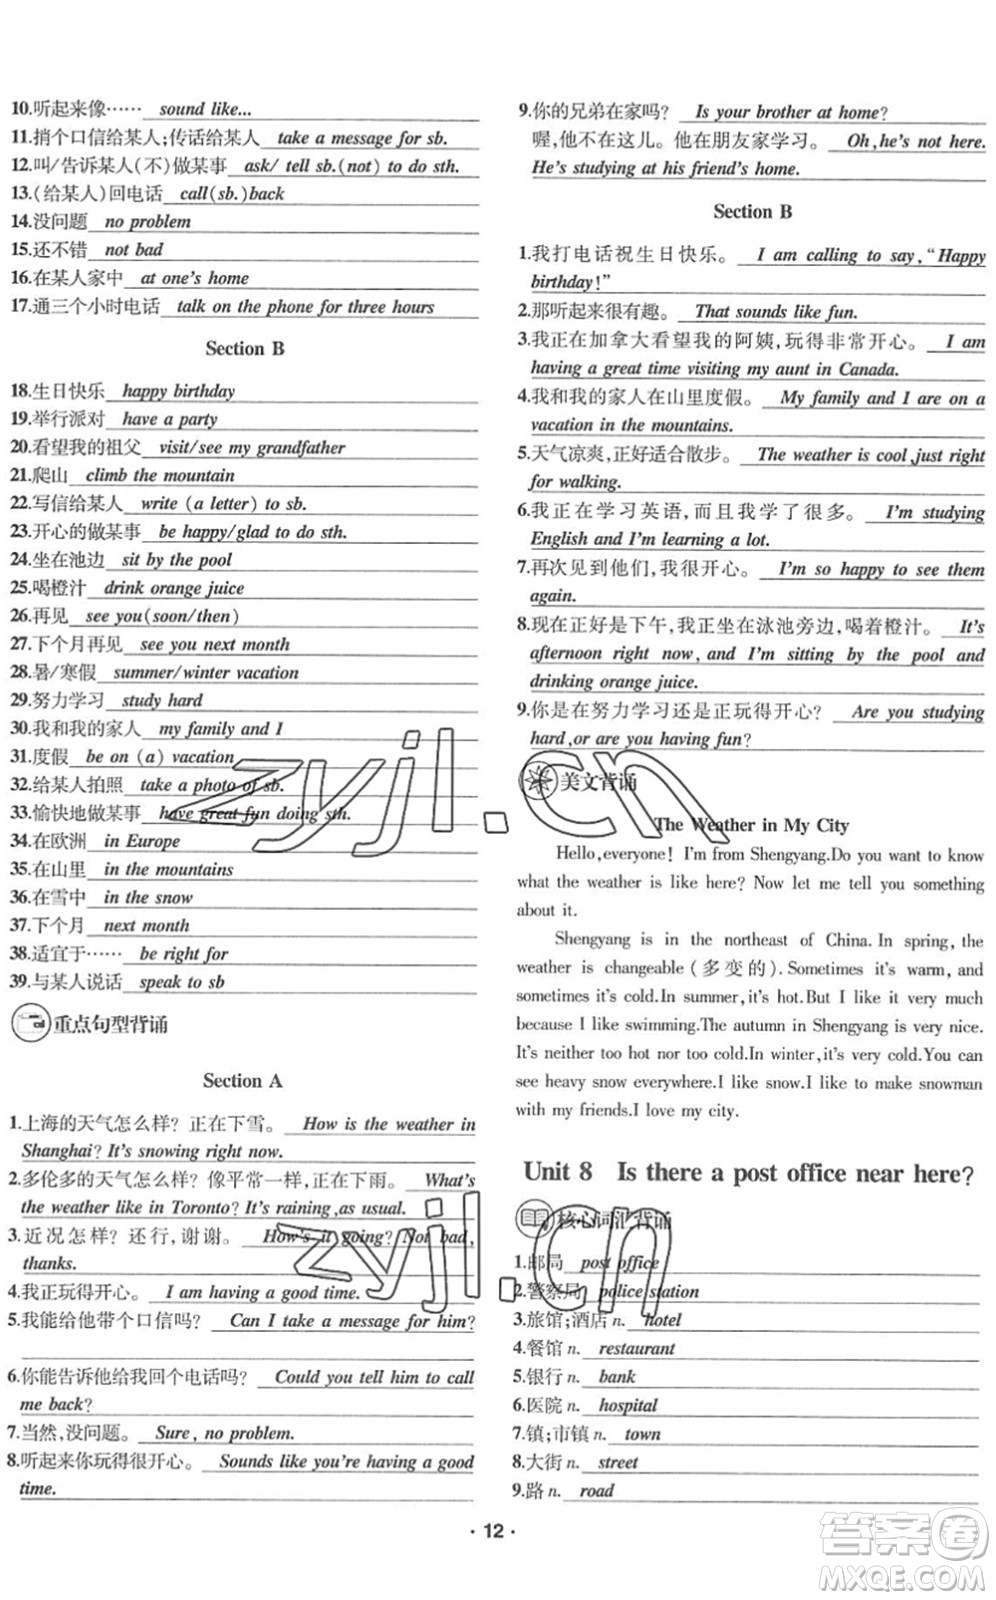 10.听起来像…… sound like...
11.捎个口信给某人;传话给某人 take a message for sb.
12.叫/告诉某人(不)做某事 ask/ tell sb.(not) to do sth.
13.(给某人)回电话 call(sb.)back
14.没问题 no problem
15.还不错 not bad
16.在某人家中 at one's home
17.通三个小时电话 talk on the phone for three hours
Section B
18.生日快乐 happy birthday
19.举行派对 have a party
20.看望我的祖父 visit/see my grandfather
21.爬山 climb the mountain
22.写信给某人 write (a letter) to sb.
23.开心的做某事 be happy/glad to do sth.
24.坐在池边 sit by the pool
25.喝橙汁 drink orange juice
26.再见 see you(soon/then)
27.下个月再见 see you next month
28.暑/寒假 summer/winter vacation
29.努力学习 study hard
30.我和我的家人 my family and I
31.度假 be on (a) vacation
32.给某人拍照 take a photo of sb.
33.愉快地做某事 have great fun doing sth.
34.在欧洲 in Europe
35.在山里 in the mountains
36.在雪中 in the snow
37.下个月 next month
38.适宜于…… be right for
39.与某人说话 speak to sb
重点句型背诵
Section A
1.上海的天气怎么样? 正在下雪。 How is the weather in
Shanghai? It's snowing right now.
2.多伦多的天气怎么样? 像平常一样,正在下雨。 What's
the weather like in Toronto? It's raining,as usual.
3.近况怎样? 还行,谢谢。 How's it going? Not bad,
thanks.
4.我正玩得开心。 I am having a good time.
5.我能给他带个口信吗? Can I take a message for him?
6.你能告诉他给我回个电话吗? Could you tell him to call
me back?
7.当然,没问题。 Sure, no problem.
8.听起来你玩得很开心。 Sounds like you're having a good
time.
9.你的兄弟在家吗? Is your brother at home?
喔,他不在这儿。他在朋友家学习。 Oh,he's not here.
He's studying at his friend's home.
Section B
1.我打电话祝生日快乐。 I am calling to say,"Happy
birthday!"
2.那听起来很有趣。 That sounds like fun.
3.我正在加拿大看望我的阿姨,玩得非常开心。 I am
having a great time visiting my aunt in Canada.
4.我和我的家人在山里度假。 My family and I are on a
vacation in the mountains.
5.天气凉爽,正好适合散步。 The weather is cool,just right
for walking.
6.我正在学习英语,而且我学了很多。 I'm studying
English and I'm learning a lot.
7.再次见到他们,我很开心。 I'm so happy to see them
again.
8.现在正好是下午,我正坐在泳池旁边,喝着橙汁。 It's
afternoon right now, and I'm sitting by the pool and
drinking orange juice.
9.你是在努力学习还是正玩得开心? Are you studying
hard,or are you having fun?
美文背诵
The Weather in My City
Hello,everyone! I'm from Shengyang.Do you want to know
what the weather is like here? Now let me tell you something
about it.
Shengyang is in the northeast of China. In spring, the
weather is changeable(多变的).Sometimes it's warm, and
sometimes it's cold.In summer,it's hot.But I like it very much
because I like swimming.The autumn in Shengyang is very nice.
It's neither too hot nor too cold.In winter,it's very cold.You can
see heavy snow everywhere.I like snow.I like to make snowman
with my friends.I love my city.
Unit 8 Is there a post office near here?
核心词汇背诵
1.邮局 post office
2.警察局 police station
3.旅馆;酒店 n. hotel
4.餐馆 n. restaurant
5.银行 n. bank
6.医院 n. hospital
7.镇;市镇 n. town
8.大街 n. street
9.路 n. road
· 12 ·
zyjl.cn
zyjl.cn
答案卷
MXQE.COM